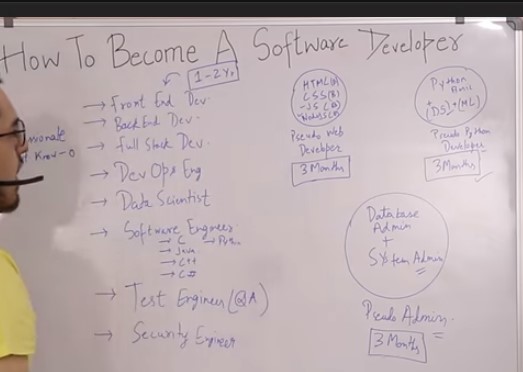 How To Become A Software Developer
1-2 Yr
→ Front End Dev.
→ BackEnd Dev.
→ Full Stack Dev.
→ DevOps Eng
→ Data Scientist
→ Software Engineer
→ C → Python
→ Java
→ C++
→ C#
→ Test Engineer (QA)
→ Security Engineer
Know-0
HTML(B)
CSS(B)
JS(B)
NodeJS(B)
Pseudo Web
Developer
3 Months
Python
Basic
+(DS)+(ML)
Pseudo Python
Developer
3 Months
Database
Admin
+
System Admin
Pseudo Admin.
3 Months